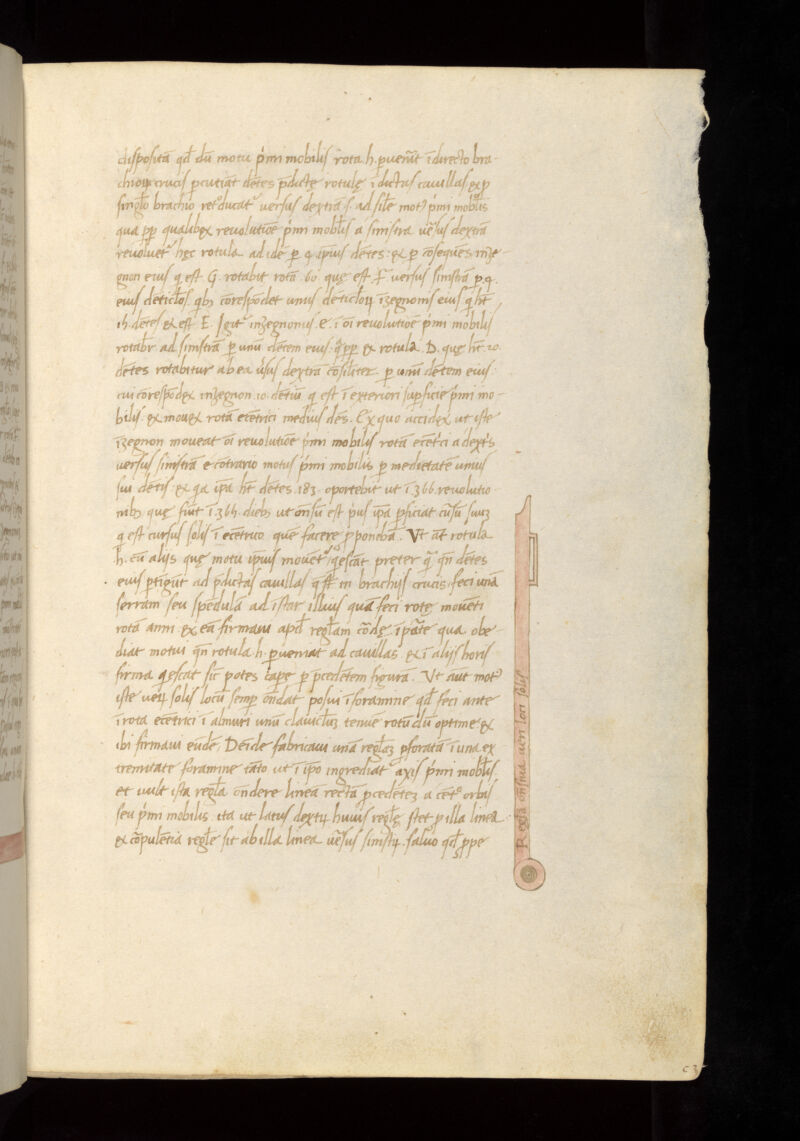 dispositã qđ dũ motu pͥmi mobilis rota .h. puenĩt ĩdirecto bra-
chioꝝ crucis pcutiãt dẽtes pdictę rotulę ĩ dictas cauillas
singl̃o brachio versus dextrã motꝰ pͥmi mobilis
qua ꝓp qualibꝫ reuolutiõe pͥmi mobil̃s a sinistra ũsus dextrã
reuoluetᷣ hęc rotula ad idẽ ꝑ q. ipius dẽtes: & ꝑ cõsequẽs inze-
gnon eius q̃ est G. rotabit rotã .60. quę est .F. versus sinistrã ꝑ q.
eius dẽticlos̃ qͥbꝫ cõrespõdet unus dẽticloꝝ ĩzegnonis eius q̃ ht̃
dẽtes & est .E. Igitᷣ inzegnonus .e. ĩ oĩ reuolutiõe pͥmi mobilis
rotabr̃ ad sinistrã ꝑ unũ dẽtem eius. & rotula .D. quę ht̃ .20.
dẽtes rotabitur ab ea ũsus dextrã cõsiliter ꝑ unũ dẽtem eius
cui corespõdꝫ inzegnon .10. dẽtiũ q̃ est ĩ exteriori suꝑficie pͥmi mo-
bilis. & mouꝫ rotã ecẽtrici medius dẽs. Ex quo accidꝫ ut iste
ĩzegnon moueat oĩ reuolutiõe pͥmi mobilis rotã ecẽtͥci a dextͥs
versus sinistrã e contrario motus pͥmi mobilis ꝑ medietatẽ unius
sui dẽtis: & qa ip̃a ht̃ dẽtes .183. oportebit ut ĩ .366. reuolutio-
nibꝰ quę fiũt ĩ .365. diebꝰ ut oñsũ est pͥus ip̃a ꝑficiat cursũ suuꝫ
q̃ est cursus solis ĩ ecẽtrico quẽ facere ꝓponebã. Vt aũt rotula
.h. cũ alijs quę motu ipius mouẽtᷣ qͥescãt preter q̃ qñ dẽtes
eius ꝑtigũt ad pdictas cauillas q̃ sũt in brachijs crucis. feci unã
serram seu spẽdulã ad istar illius quã feci rotę mouẽti
rotã anni & eã firmaui apđ regl̃am cõdę ĩ pãte qua obe-
diat motui qñ rotula .h. perueniat ad cauillas & ĩ alijs horis
firma qͥescat sic potes cape ꝑ pcedẽtem figurã. Vt aũt motꝰ
iste ueri solis locũ semp oñdat posui ĩ foramine qđ feci ante
ĩ rota ecẽtrici ĩ almuri unũ clauiclũ tenue rotũdũ optime &
ibi firmaui eũdẽ. Deĩde fabricaui unã regl̃aꝫ pforatã ĩ una ex
tremitate foramine tãto ut ĩ ip̃o ingrediat̃ axis pͥmi mobil̃s
et uult ista regl̃a oñdere lineã rectã pcedẽteꝫ a cẽtͦ orbis
seu pͥmi mobilis. ita ut latus dextrꝫ huius regl̃ę stet ꝑ illa linea
& cõpulẽtia regl̃ę sit ab illa linea ũsus sinistrꝫ. saluo qđ ꝓpe
Regl̃a oñsiua ueri loci solis
c 3